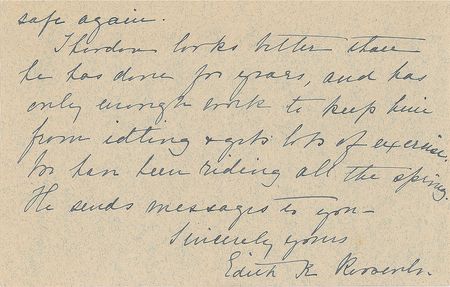 safe again.
Theodore looks better than
he has done for years, and has
only enough work to keep him
from idling & gets lots of exercise.
We have been riding all the spring.
He sends messages to you—
Sincerely yours
Edith K Roosevelt.